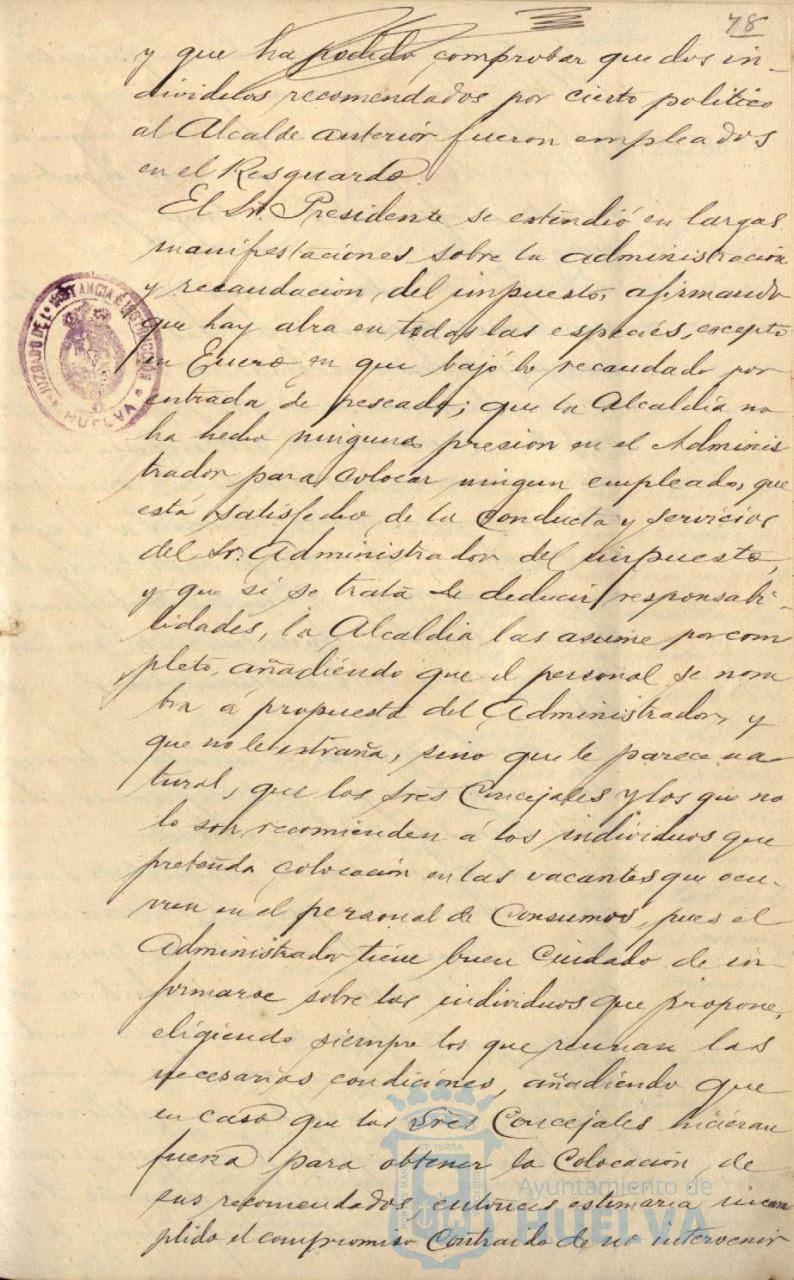 78
y que ha podido comprobar que dos in-
dividuos recomendados por cierto politico
al Alcalde anterior fueron empleados
en el Resguardo.
El Sr. Presidente se extendió en largas
manifestaciones sobre la administración
y recaudación del impuesto, afirmando
que hay alza en todas las especies, excepto
en Enero en que bajó lo recaudado por
entrada de pescado; que la Alcaldía no
ha hecho ninguna presion en el Adminis
trador para colocar ningun empleado, que
está satisfecho de la conducta y servicios
del Sr. Administrador del impuesto,
y que si se trata de deducir responsabi-
lidades, la Alcaldia las asume por com
pleto, añadiendo que el personal se nom
bra á propuesta del Administrador, y
que no le extraña, sino que le parece na
tural, que los Sres Concejales y los que no
lo son recomienden á los individuos que
pretenda colocación en las vacantes que ocu-
rren en el personal de Consumos, pues el
Administrador tiene buen cuidado de in-
formarse sobre los individuos que propone,
eligiendo siempre los que reunan las
necesarias condiciones, añadiendo que
en caso que los Sres Concejales hicieran
fuerza para obtener la colocación de
sus recomendados entonces estimaria incum
plido el compromiso contraido de no intervenir
JUZGADO DE 1ª INSTANCIA E INSTRUCCION
HUELVA
Ayuntamiento de
HUELVA